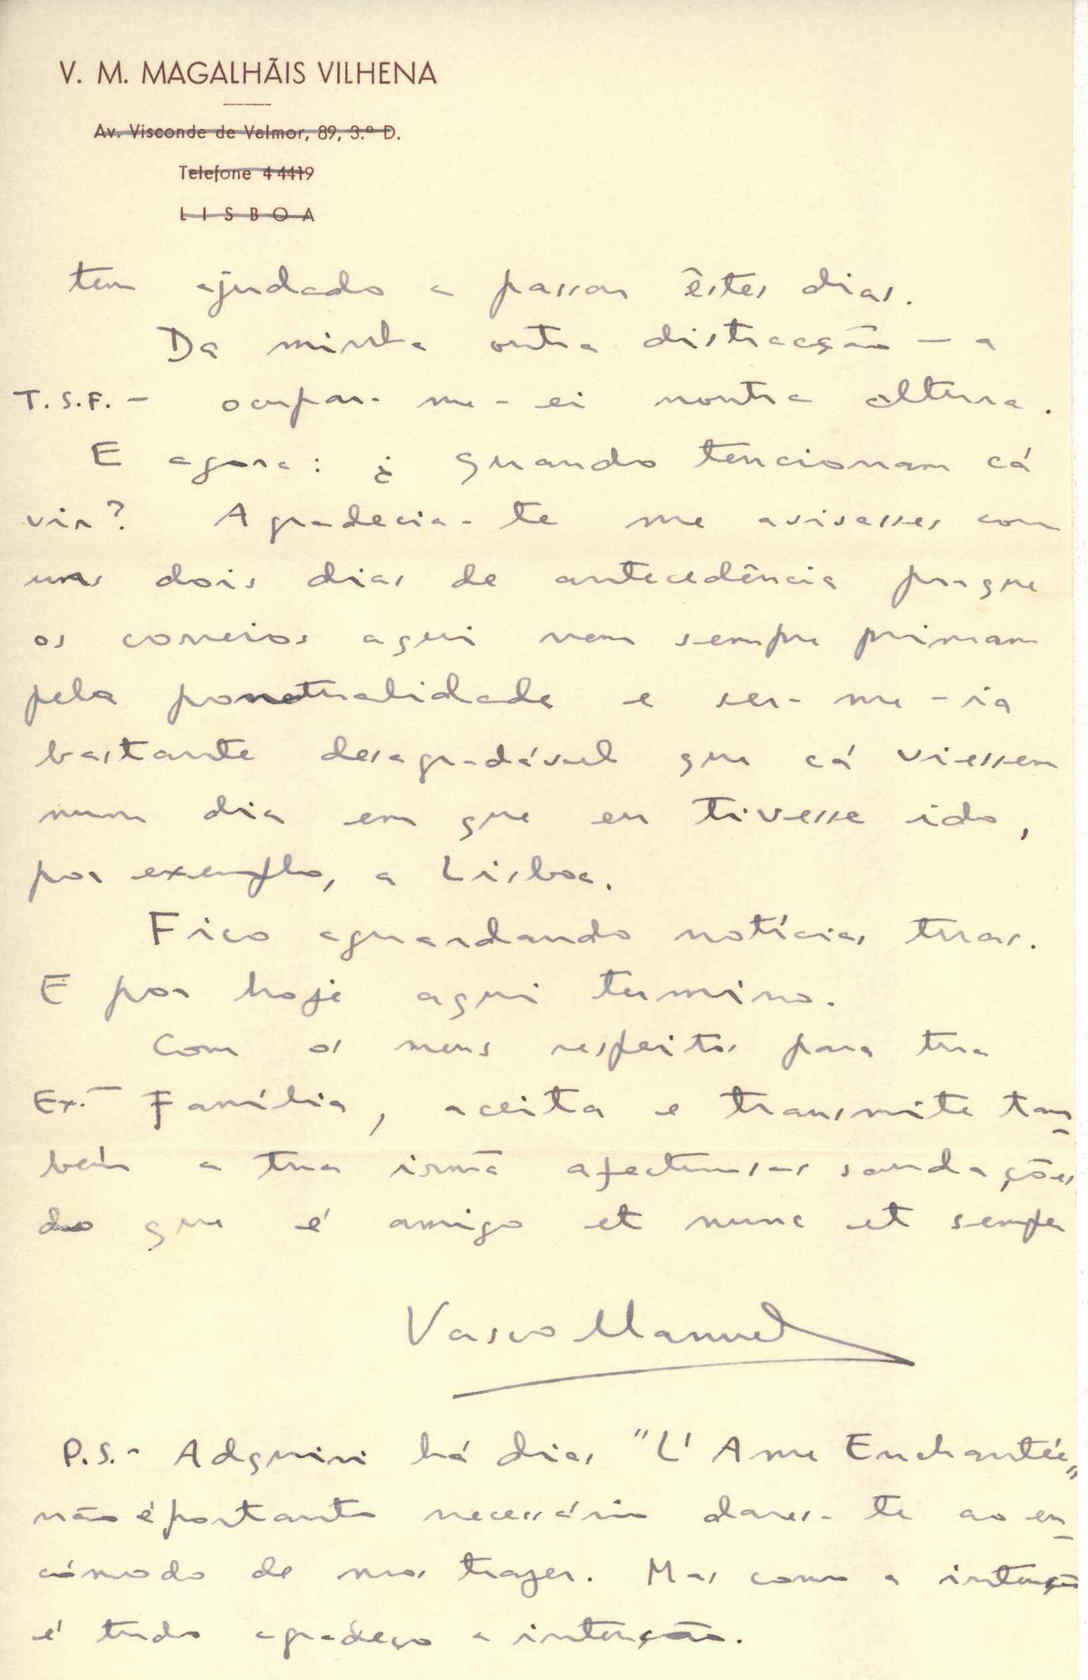 V. M. MAGALHÃIS VILHENA
Av. Visconde de Valmor, 89, 3.º D.
Telefone 4 4419
LISBOA
tem ajudado a passar êstes dias.
Da minha outra distracção — a
T.S.F. — ocupar-me-ei noutra altura.
E agora: ¿ quando tencionam cá
vir? Agradecia-te me avisasses com
uns dois dias de antecedência porque
os correios aqui nem sempre primam
pela pontualidade e ser-me-ia
bastante desagradável que cá viessem
num dia em que eu tivesse ido,
por exemplo, a Lisboa.
Fico aguardando notícias tuas.
E por hoje aqui termino.
Com os meus respeitos para tua
Ex.ª Família, aceita e transmite tam-
bém a tua irmã afectuosas saudações
do que é amigo et nunc et semper
Vasco Manuel
P.S. - Adquiri há dias "L'Ame Enchantée"
não é portanto necessário dares-te ao en-
cómodo de mos trazer. Mas como a intenção
é tudo agradeço a intenção.